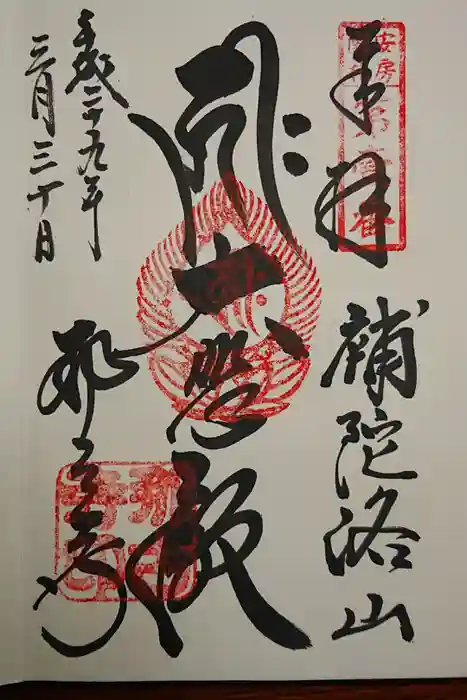 奉拝
補陀洛山
安房
大悲殿
平成二十九年
三月三十日
那古寺